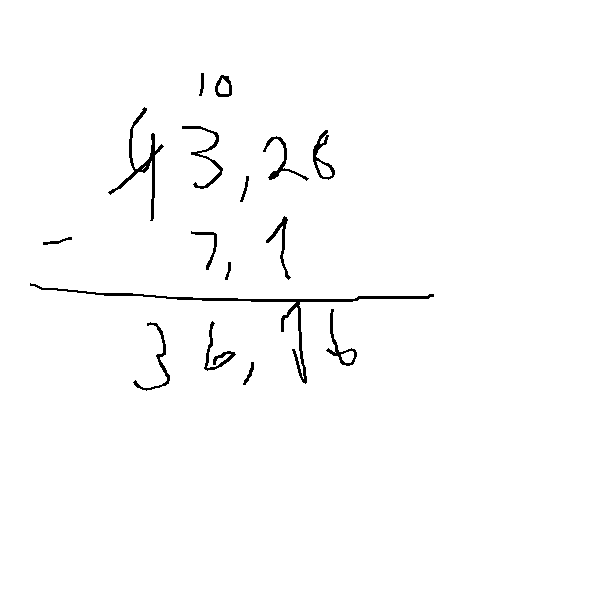 10
43,26
- 7,1
36,16